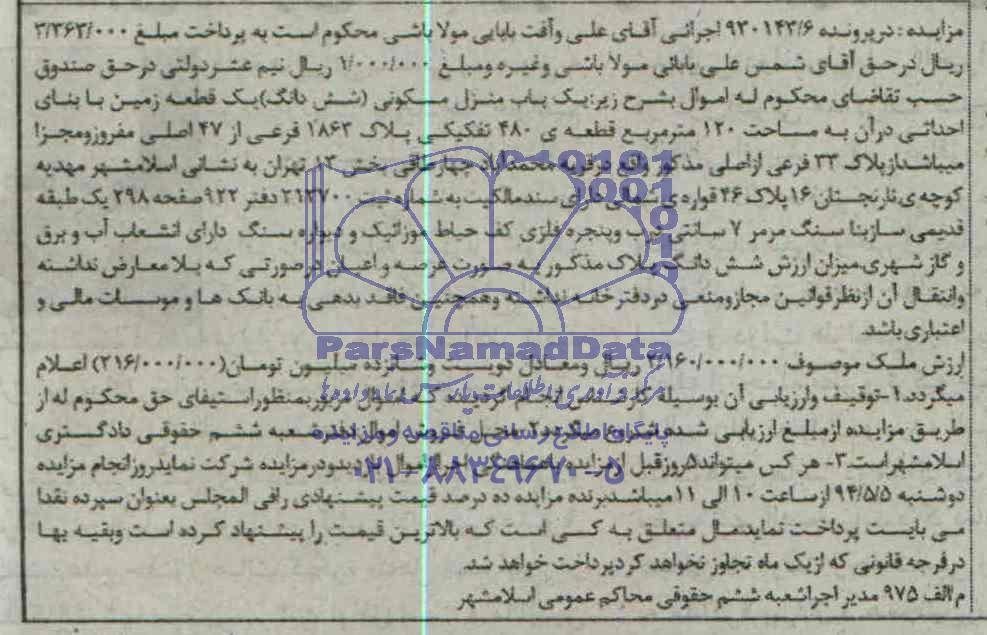 مزایده : در پرونده ۹۳۰۱۴۳/۶ اجرائی آقای علی وآفت بابایی مولا باشی محکوم است به پرداخت مبلغ ۳/۳۶۳/۰۰۰
ریال در حق آقای شمس علی بابائی مولا باشی وغیره ومبلغ ۱/۰۰۰/۰۰۰ ریال نیم عشر دولتی در حق صندوق
حسب تقاضای محکوم له اموال بشرح زیر:یک باب منزل مسکونی (شش دانگ)یک قطعه زمین با بنای
احداثی در آن به مساحت ۱۲۰ مترمربع قطعه ی ۴۸۰ تفکیکی پلاک ۱۸۶۳ فرعی از ۴۷ اصلی مفروزومجزا
میباشدازپلاک ۳۳ فرعی ازاصلی مذکور واقع درقریه محمدآباد چهارطاقی بخش ۱۲ تهران به نشانی اسلامشهر مهدیه
کوچه ی نارنجستان ۱۶ پلاک ۴۶ قواره ی شمالی دارای سندمالکیت به شماره ثبت ۲۱۲۷۰۰ دفتر ۹۲۲ صفحه ۲۹۸ یک طبقه
قدیمی سازبنا سنگ مرمر ۷ سانتی درب وپنجره فلزی کف حیاط موزائیک و دیواره سنگ دارای انشعاب آب و برق
و گاز شهری.میزان ارزش شش دانگ پلاک مذکور به صورت عرصه و اعیان درصورتی که بلا معارض نداشته
وانتقال آن ازنظرقوانین مجازومنعی دردفترخانه نداشته وهمچنین فاقد بدهی به بانک ها و موسسات مالی و
اعتباری باشد.
ارزش ملک موصوف ۲/۱۶۰/۰۰۰/۰۰۰ ریال ومعادل دویست وشانزده میلیون تومان(۲۱۶/۰۰۰/۰۰۰) اعلام
میگردد.۱-توقیف وارزیابی آن بوسیله کارشناس اموال بمنظوراستیفای حق محکوم له از
طریق مزایده ازمبلغ ارزیابی شده شروع میگردد.۲-محل فروش اموال دفترشعبه ششم حقوقی دادگستری
اسلامشهراست.۳- هر کس میتواند۵روزقبل ازمزایده دیدودرمزایده شرکت نمایدروزانجام مزایده
دوشنبه ۹۴/۵/۵ ازساعت ۱۰ الی ۱۱میباشدبرنده مزایده ده درصد قیمت پیشنهادی رافی المجلس بعنوان سپرده نقدا
می بایست پرداخت نمایدمال متعلق به کسی است که بالاترین قیمت را پیشنهاد کرده است وبقیه بها
درفرجه قانونی که ازیک ماه تجاوز نخواهد کردپرداخت خواهد شد.
م الف ۹۷۵ مدیر اجراشعبه ششم حقوقی محاکم عمومی اسلامشهر
ParsNamadData
مرکز فرآوری اطلاعات پارس نماد داده ها
پایگاه اطلاع رسانی مناقصه و مزایده
۰۲۱-۸۸۳۴۹۶۷۰-۵